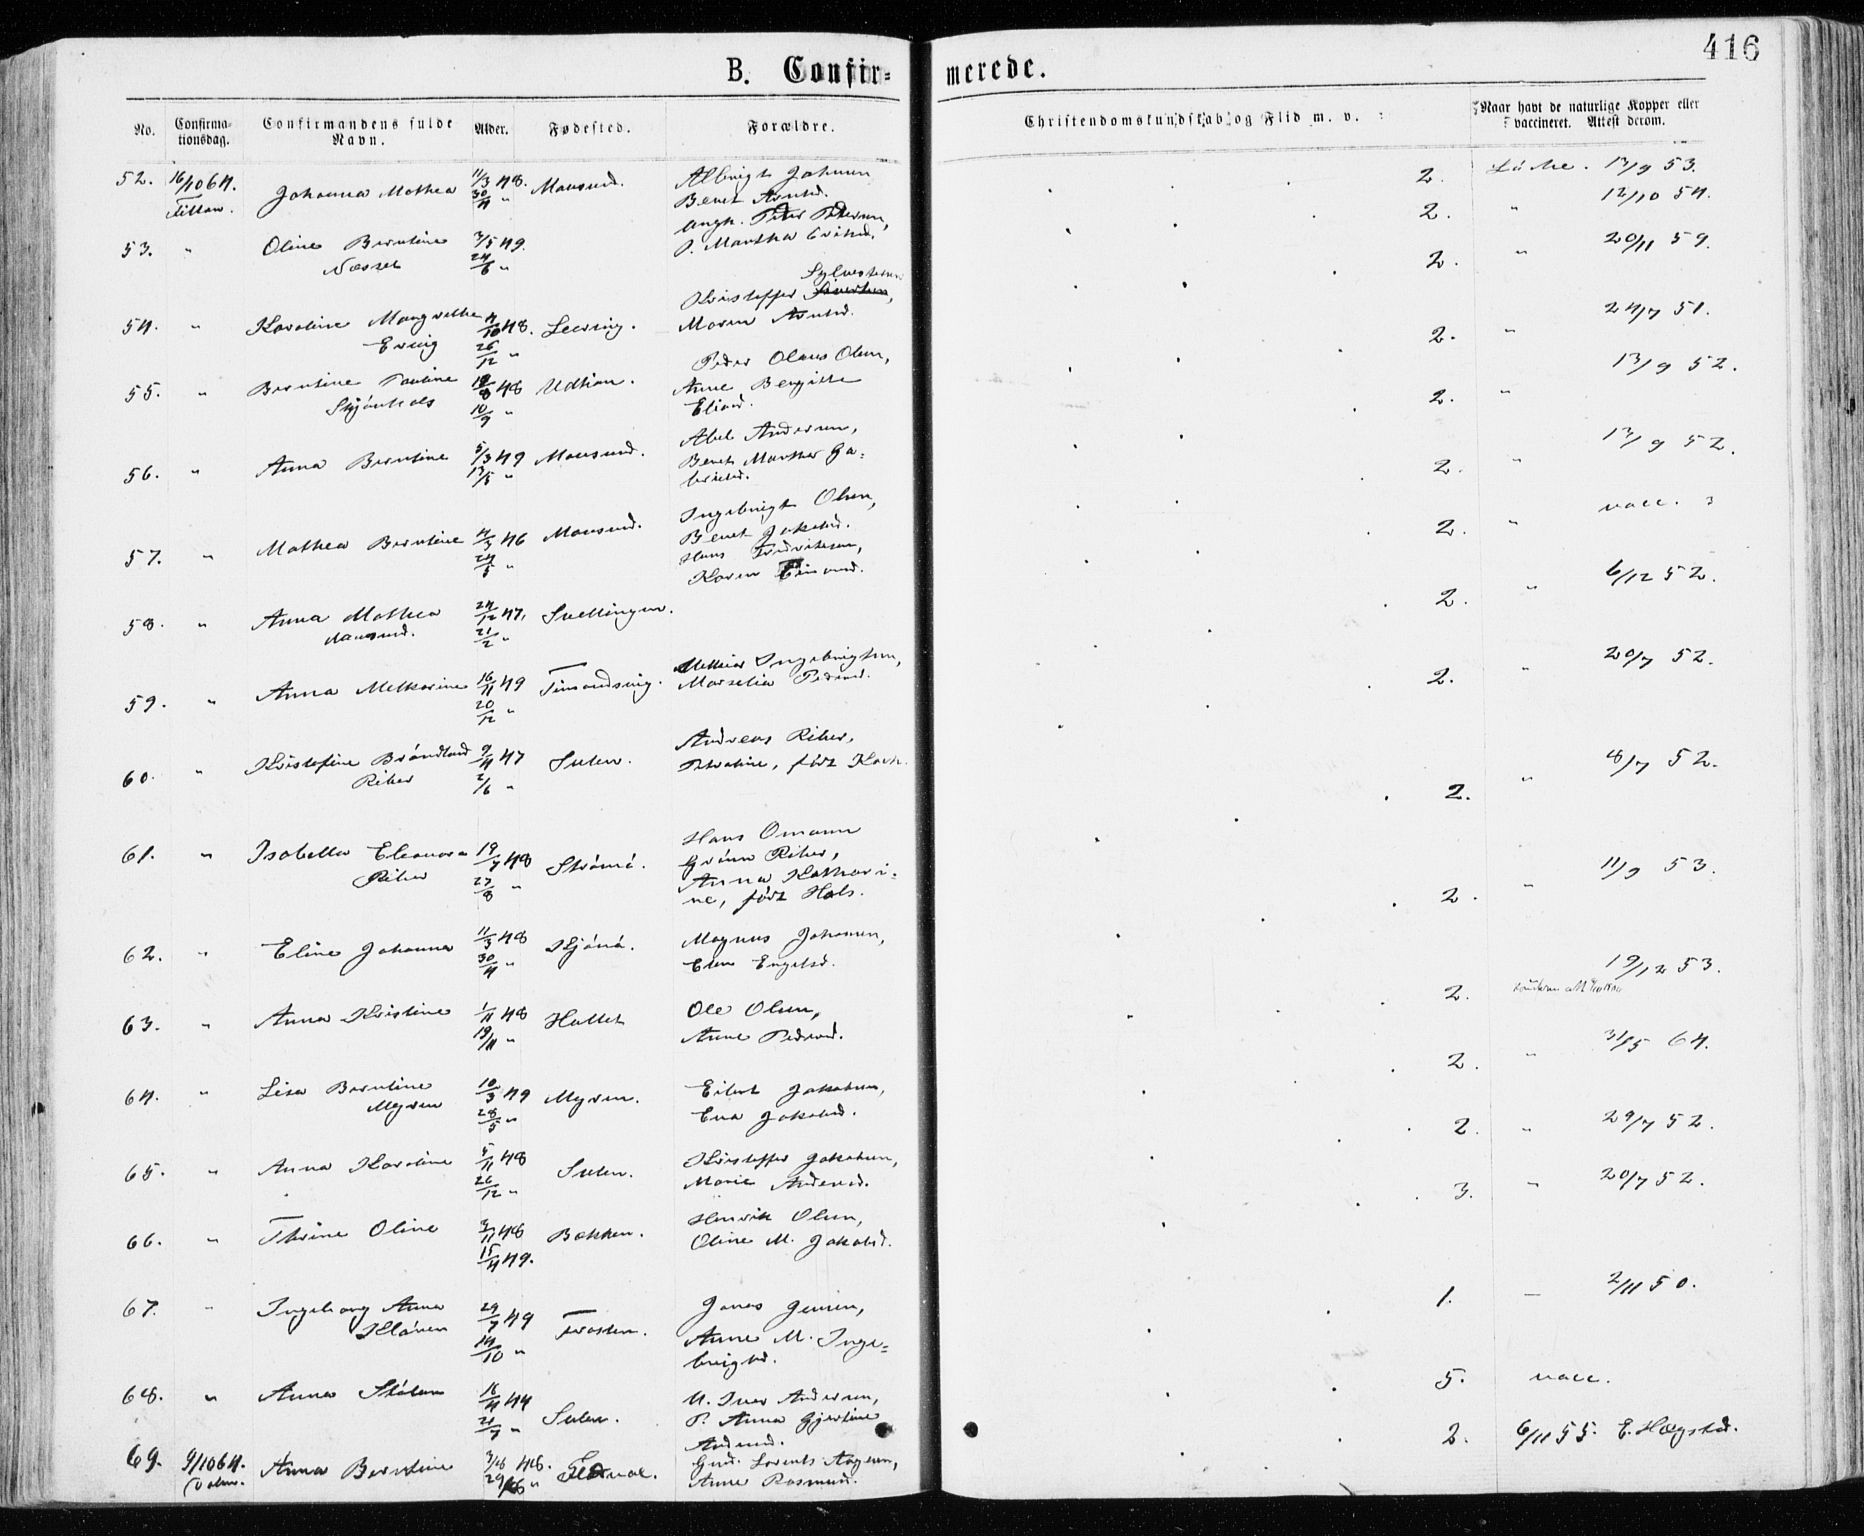 416
B. Confir-
merede.
No. Confirma-
tionsdag. Confirmandens fulde
Navn. Alder. Fødested. Forældre.
Christendomskundskab og Flid m. v.
Naar havt de naturlige Kopper eller
vaccineret. Attest derom.
52. 16/10 64. Johanna Mathea 11/3 48. Mausund. Albrigt Johnsen
30/4 " Beret Arntsd.
2. 12/9 53.
53. " Oline Berntine 3/5 49. ungk. Peder Pedersen,
Næsset 24/6 " P. Martha
2. " 12/10 54.
54. " Karoline Margrethe 4/10 48. Kristoffer Sylvestersen,
Ervig 26/12 " Maren Arntsd.
2. " 20/11 59.
55. " Berntine Pauline 12/8 48 Udtian. Peder Olaus Olsen,
Skjønhals 10/9 " Anne Bergitte
Eliasd.
2. " 24/7 51.
56. " Anna Berntine 5/3 49 Mausund. Abel Andersen,
13/5 " Beret Marthe Ga-
brielsd.
2. " 13/9 52.
57. " Mathea Berntine 4/3 46 Mausund. Ingebrigt Olsen,
24/5 " Beret Jakobsd.
2. " 13/9 52.
58. " Anna Mathea 24/12 47. Svellingen. Hans Fredriksen,
Mausund. 21/2 " Karen
2. " vacc.
59. " Anna Melkarine 16/11 49 Ingebrigtsen,
20/12 " Marselia Pedersd.
2. " 6/12 52.
60. " Kristofine Brøndlund 9/4 47 Sulen. Andreas Riber,
Riber 2/6 " Petroline, født Koch.
2. " 20/7 52.
61. " Isabella Eleonora 19/7 48 Strømø. Hans Omann
Riber 27/8 " Grønn Riber,
Anna Kathari-
ne, født Hals.
2. " 8/7 52.
62. " Eline Johanna 11/3 48 Kjønø. Magnus Johansen,
30/4 " Elen Engelsd.
2. " 11/9 53.
63. " Anna Kristine 1/11 48 Hallet Ole Olsen,
19/11 " Anne Pedersd.
2. 19/12 53.
64. " Lisa Berntine 10/3 49 Myren. Eilert Jakobsen,
Myren 28/5 " Eva Jakobsd.
2. " 31/5 64.
65. " Anna Karoline 5/11 48 Sulen. Kristoffer Jakobsen,
26/12 " Marie Andersd.
2. " 29/7 52.
66. " Thrine Oline 3/11 48 Bakken. Henrik Olsen,
15/4 49. Oline M. Jakobsd.
3. " 20/7 52.
67. " Ingeborg Anna 29/7 49 Frosten. Jonas Jensen,
Kløven 14/10 " Anne M. Inge-
brigtsd.
1. — 2/11 50.
68. " Anna Stølan 16/4 44 Sulen. U. Iver Andersen,
21/7 " P. Anna Gjertine
Andersd.
5. vacc.
69. 9/10 64. Anna Berntine 3/8 48. Lorents Aagesen,
29/ " Anne Rasmusd.
2. 6/11 55. E. Høgsted.